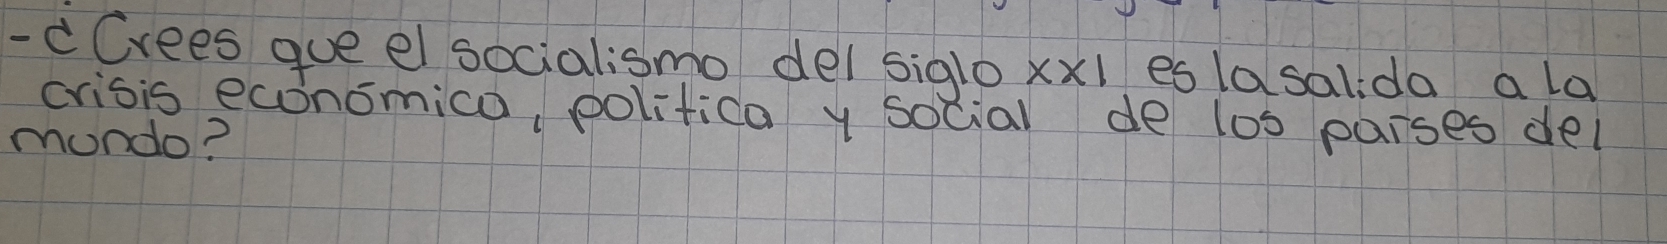 -¿Crees que el socialismo del siglo xxI es la salida a la
crisis económica, política y social de los países del
mundo?